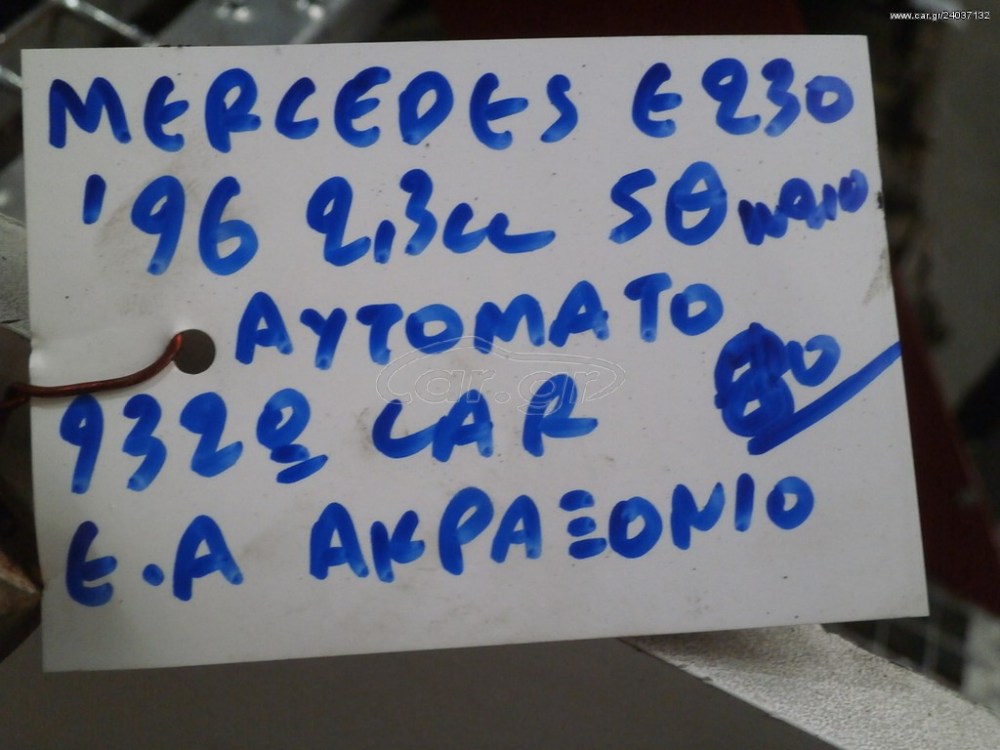 www.car.gr/24037132
MERCEDES E230
'96 2,3cc 5θυρο
ΑΥΤΟΜΑΤΟ
car.gr
9328 CAR
Ε.Α ΑΚΡΑΞΟΝΙΟ